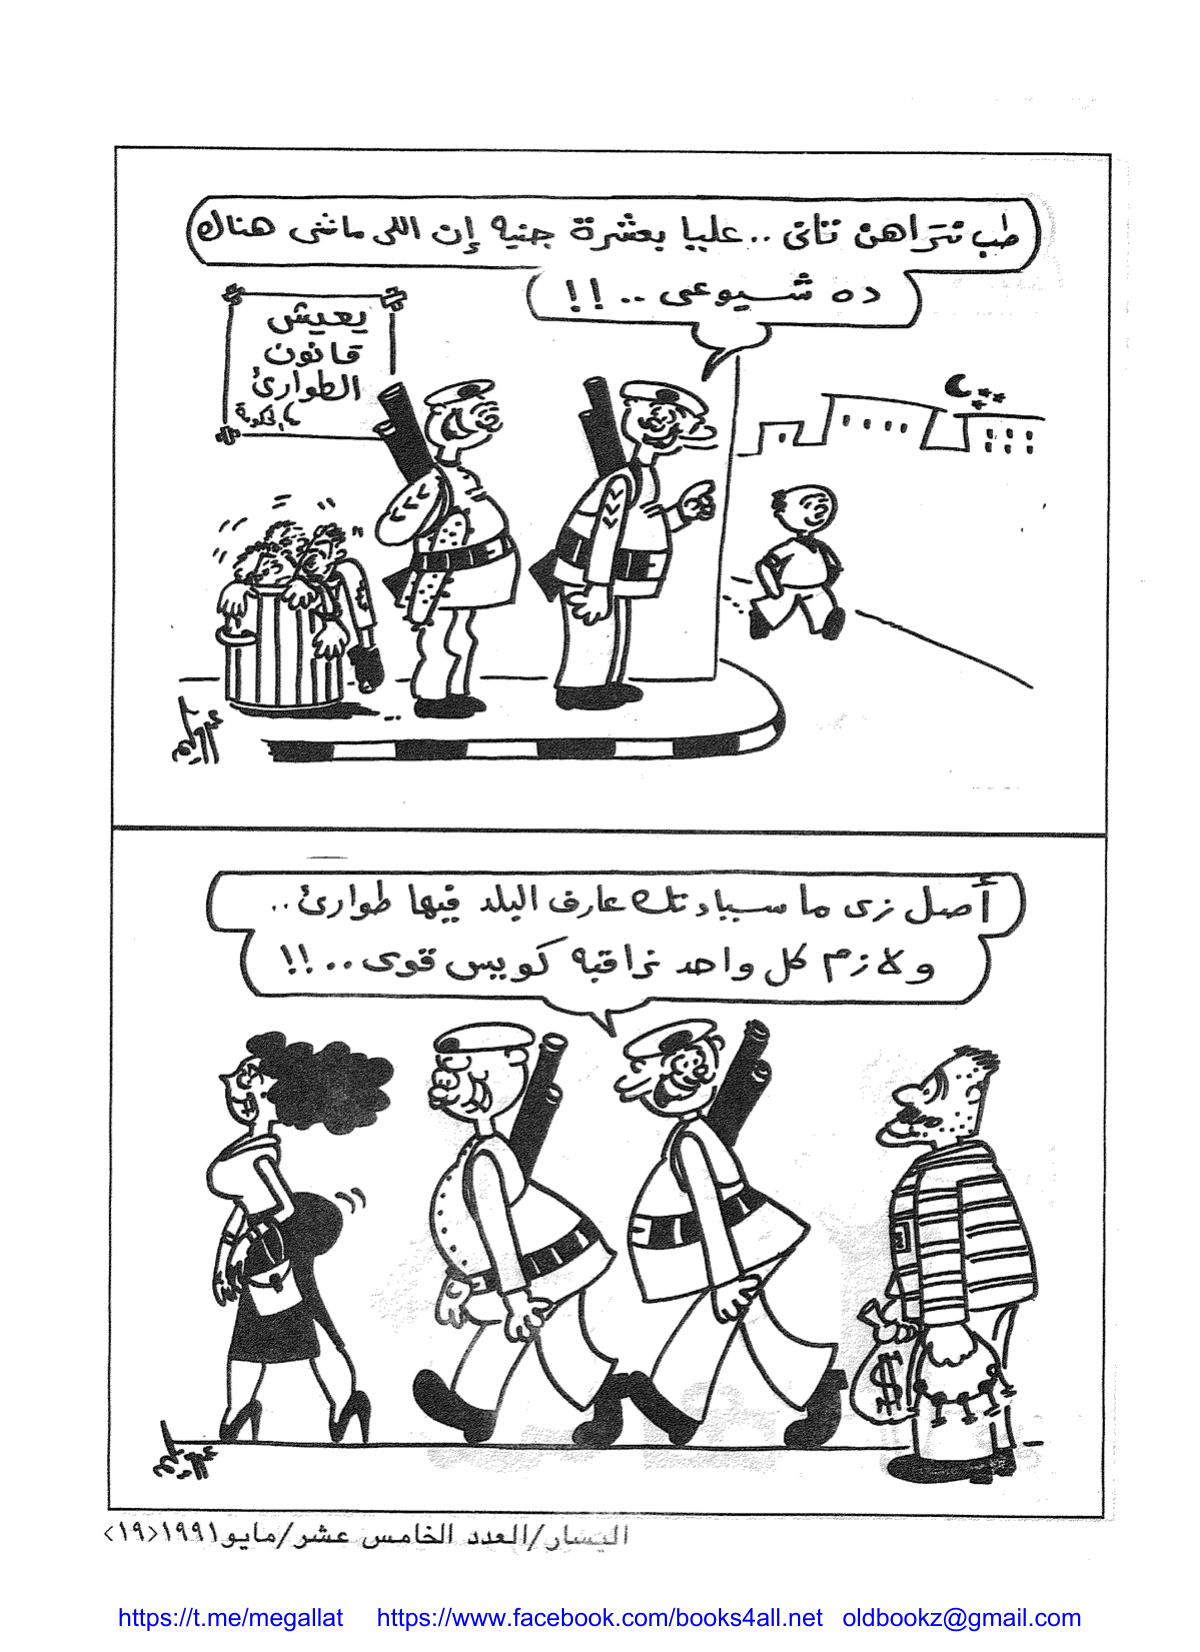 طب نتراهن تانى .. عليا بعشرة جنيه إن اللى ماشى هناك
ده شيوعى .. !!
يعيش
قانون
الطوارئ
أصل زى ما سيادتك عارف البلد فيها طوارئ ..
ولازم كل واحد نراقبه كويس قوى .. !!
$
اليسار/العدد الخامس عشر/مايو١٩٩١<١٩>
https://t.me/megallat https://www.facebook.com/books4all.net oldbookz@gmail.com